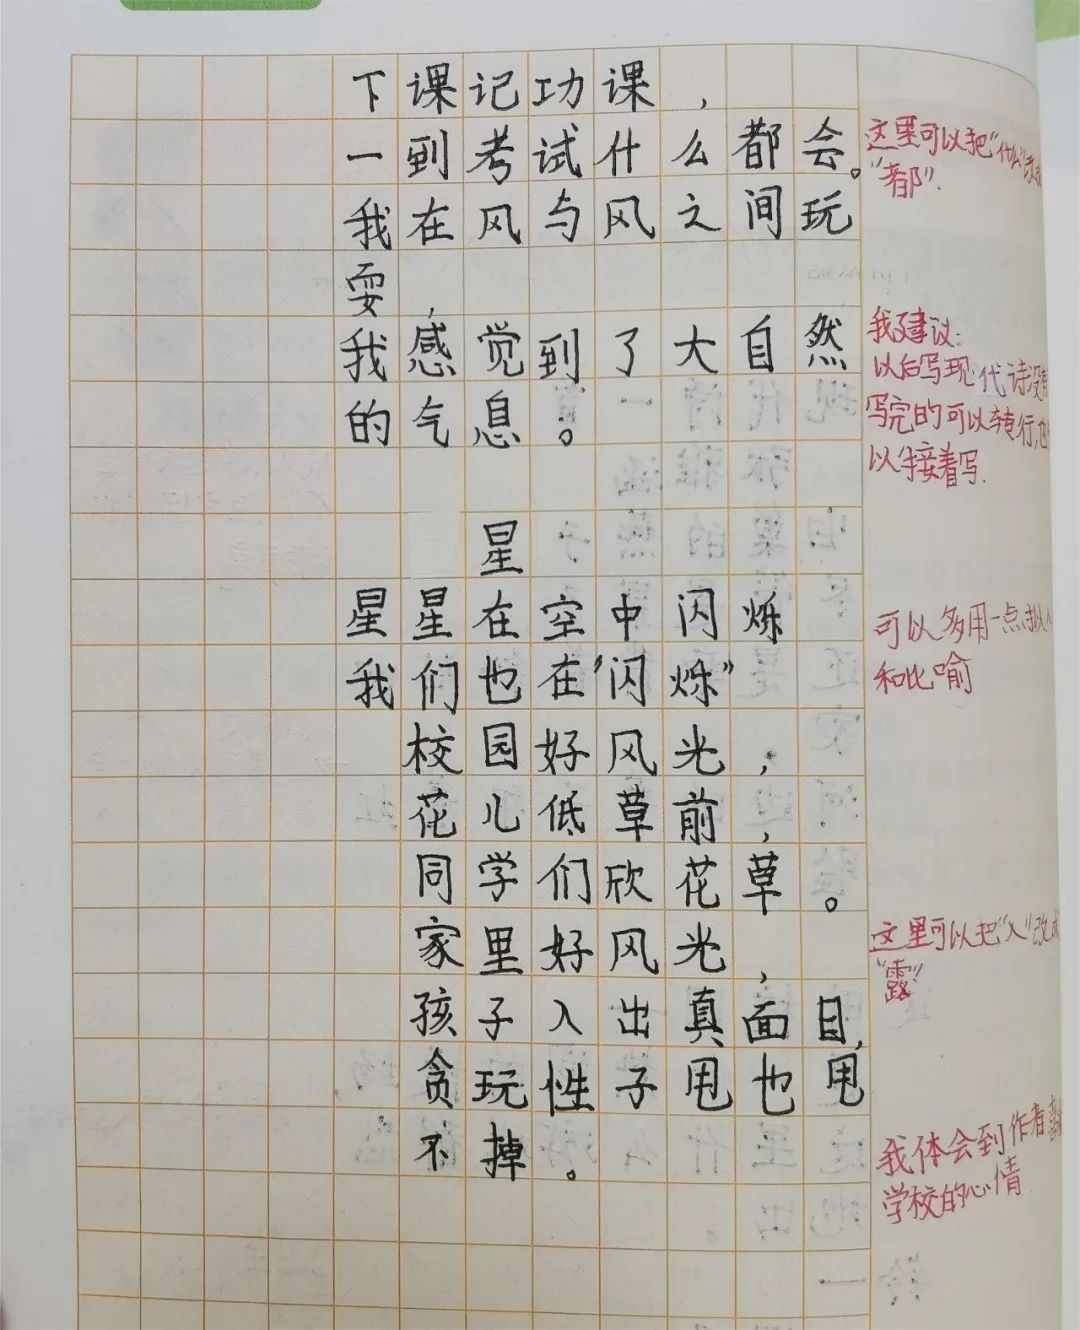 下课记功课，
一到考试什么都会。
我在风与风之间玩
耍，
我感觉到了大自然
的气息。
星
星星在空中闪烁
我们也在“闪烁”
校园好风光，
花儿低草前，
同学们欣花草。
家里好风光，
孩子入出真面目，
贪玩性子甩也甩
不掉。
这里可以把“什么”改成
“都”.
我建议：
以后写现代诗没有
写完的可以转行，也
以接着写.
可以多用一点拟人
和比喻
这里可以把“入”改成
“露”
我体会到作者
学校的心情